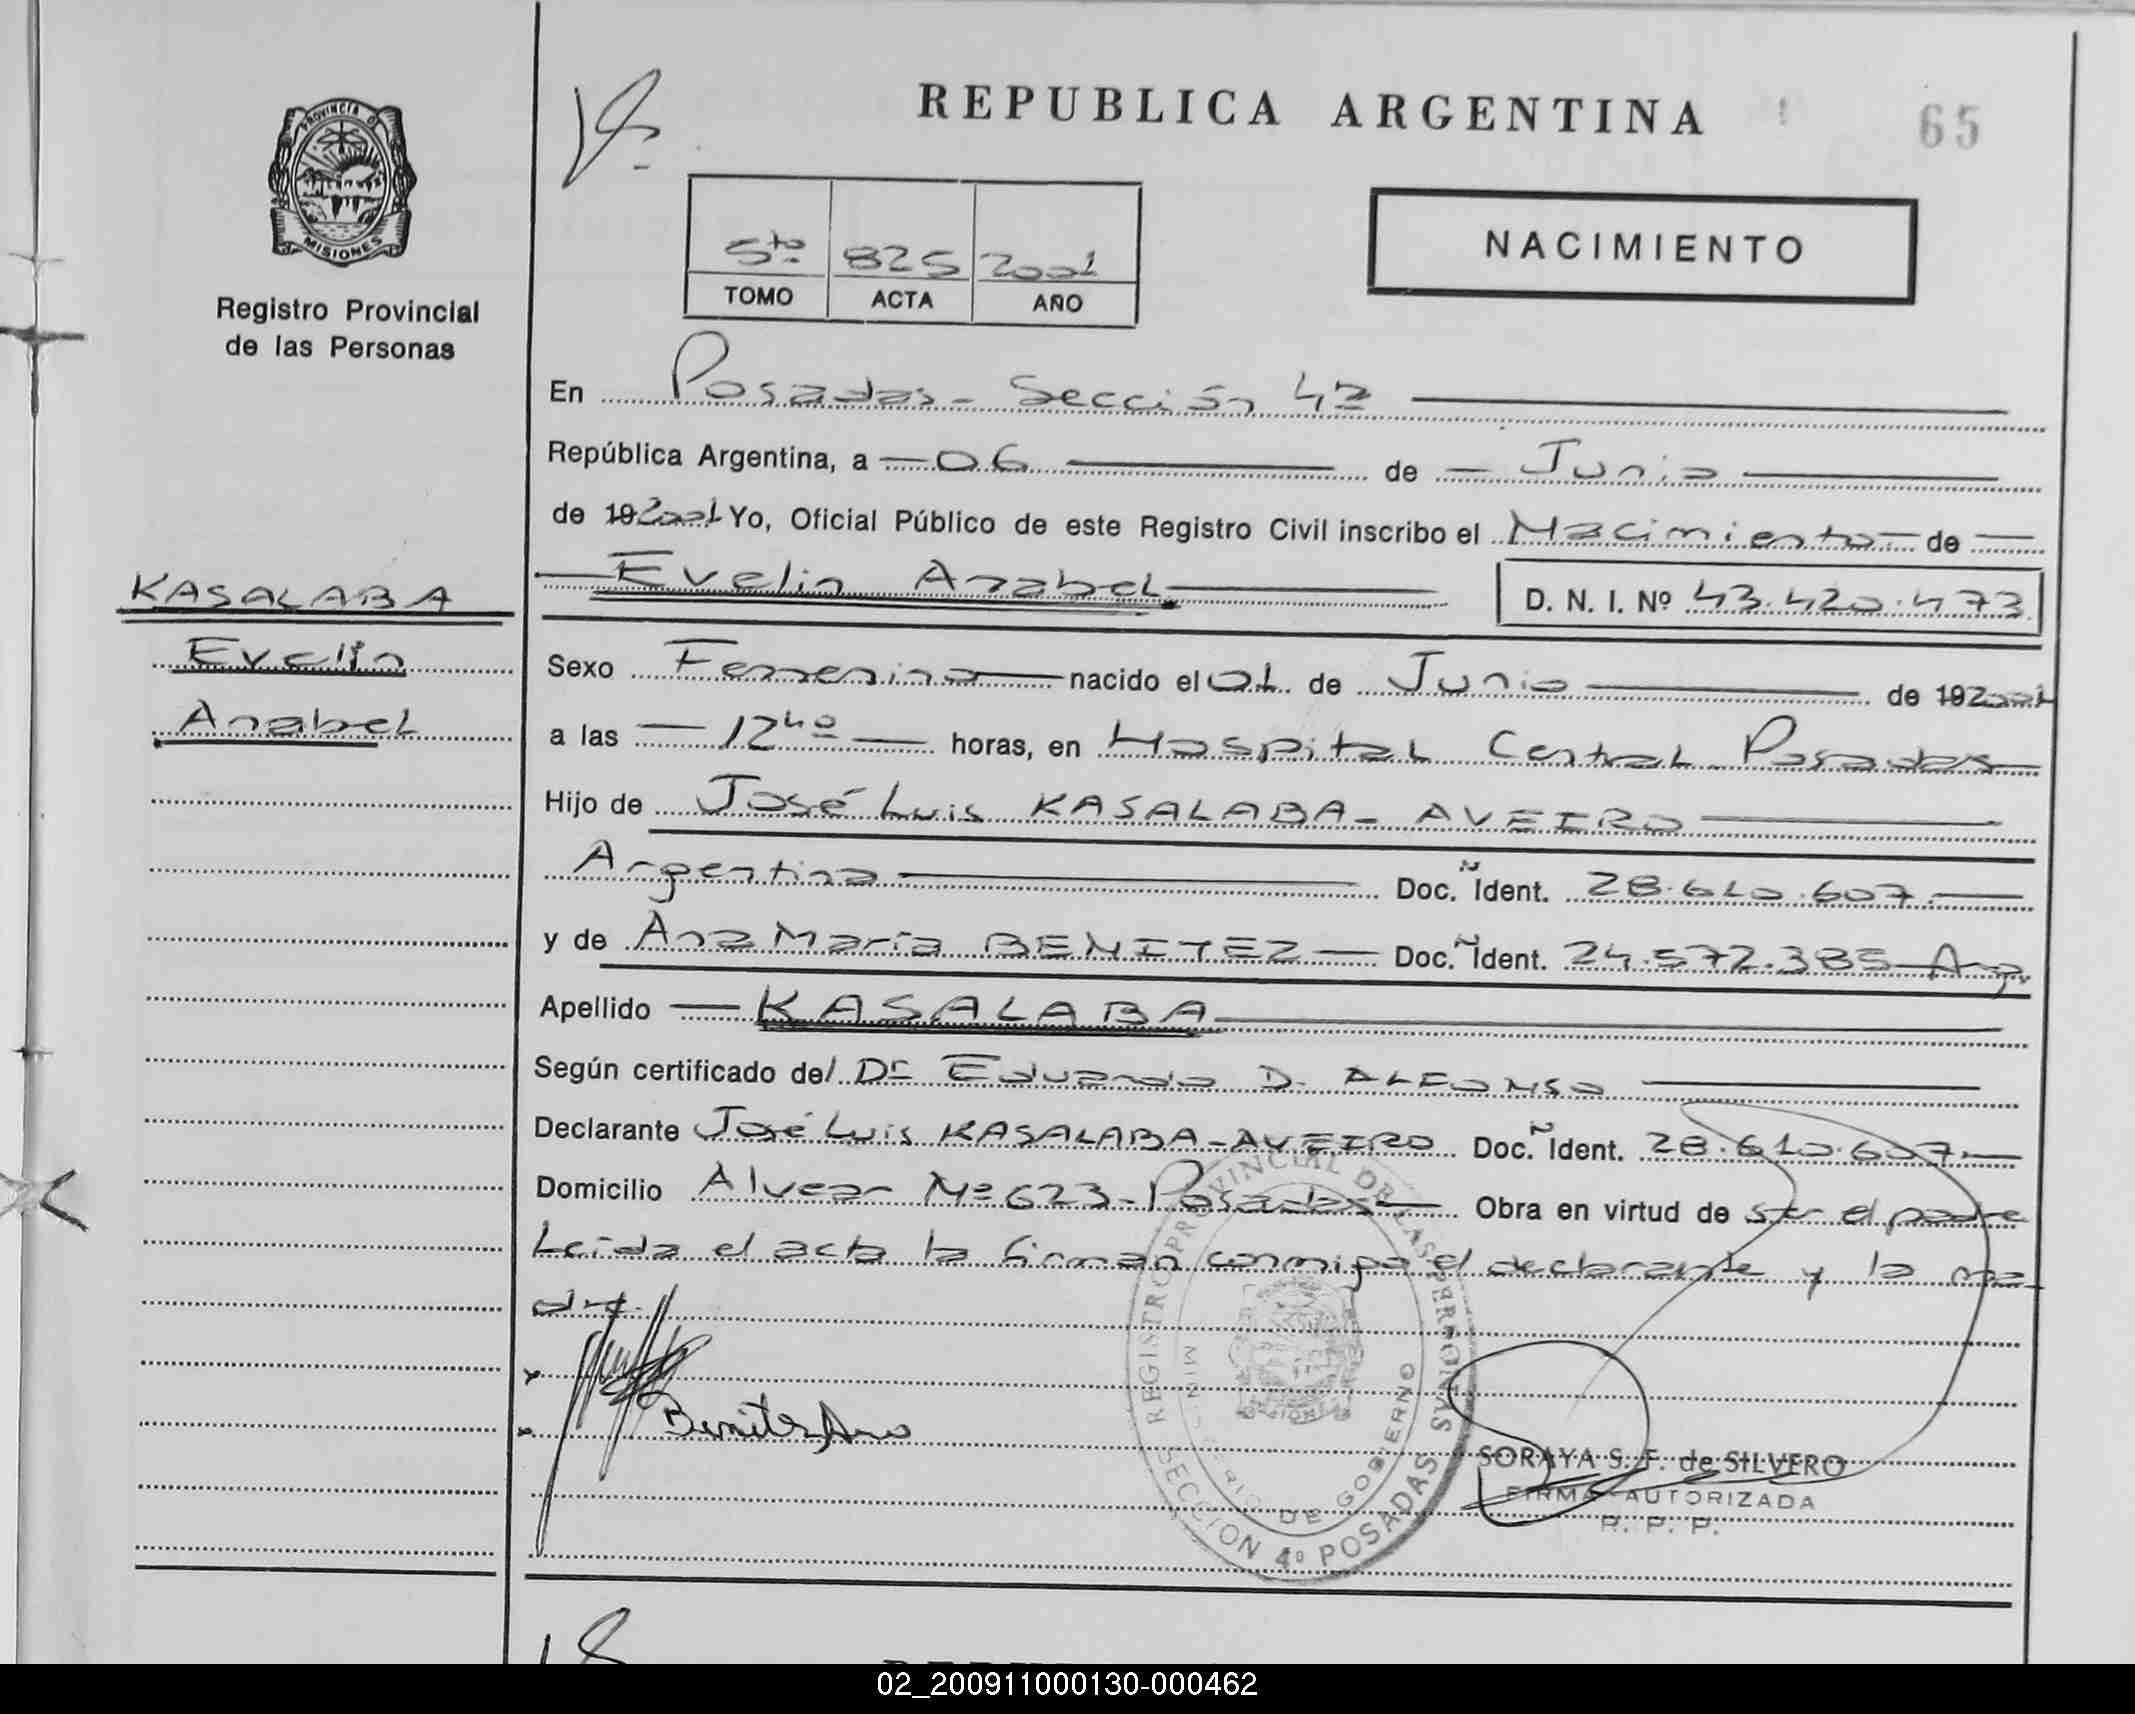 REPUBLICA ARGENTINA
65
PROVINCIA DE
MISIONES
Registro Provincial
de las Personas
5to 825 2001
TOMO ACTA AÑO
NACIMIENTO
En Posadas - Sección 4ª
República Argentina, a 06 de Junio
de 19 2001 Yo, Oficial Público de este Registro Civil inscribo el Nacimiento de
Evelin Anabel D. N. I. Nº 43.420.473
KASALABA
Evelin
Anabel
Sexo Femenino nacido el 01 de Junio de 19 2001
a las 12⁴⁰ horas, en Hospital Central Posadas
Hijo de José Luis KASALABA - AVEIRO
Argentina Doc. Ident. 28.610.607
y de Ana María BENITEZ Doc. Ident. 24.572.385 Arg.
Apellido KASALABA
Según certificado del Dr Eduardo D. ALFONSO
Declarante José Luis KASALABA - AVEIRO Doc. Ident. 28.610.607
Domicilio Alvear Nº 623 - Posadas Obra en virtud de ser el padre
Leida el acta la firman conmigo el declarante y la ma-
dre.
Benitez Ana
REGISTRO PROVINCIAL DE LAS PERSONAS
MINISTERIO DE GOBIERNO
SECCION 4º POSADAS
SORAYA S. F. de SILVERO
FIRMA AUTORIZADA
R. P. P.
02_200911000130-000462